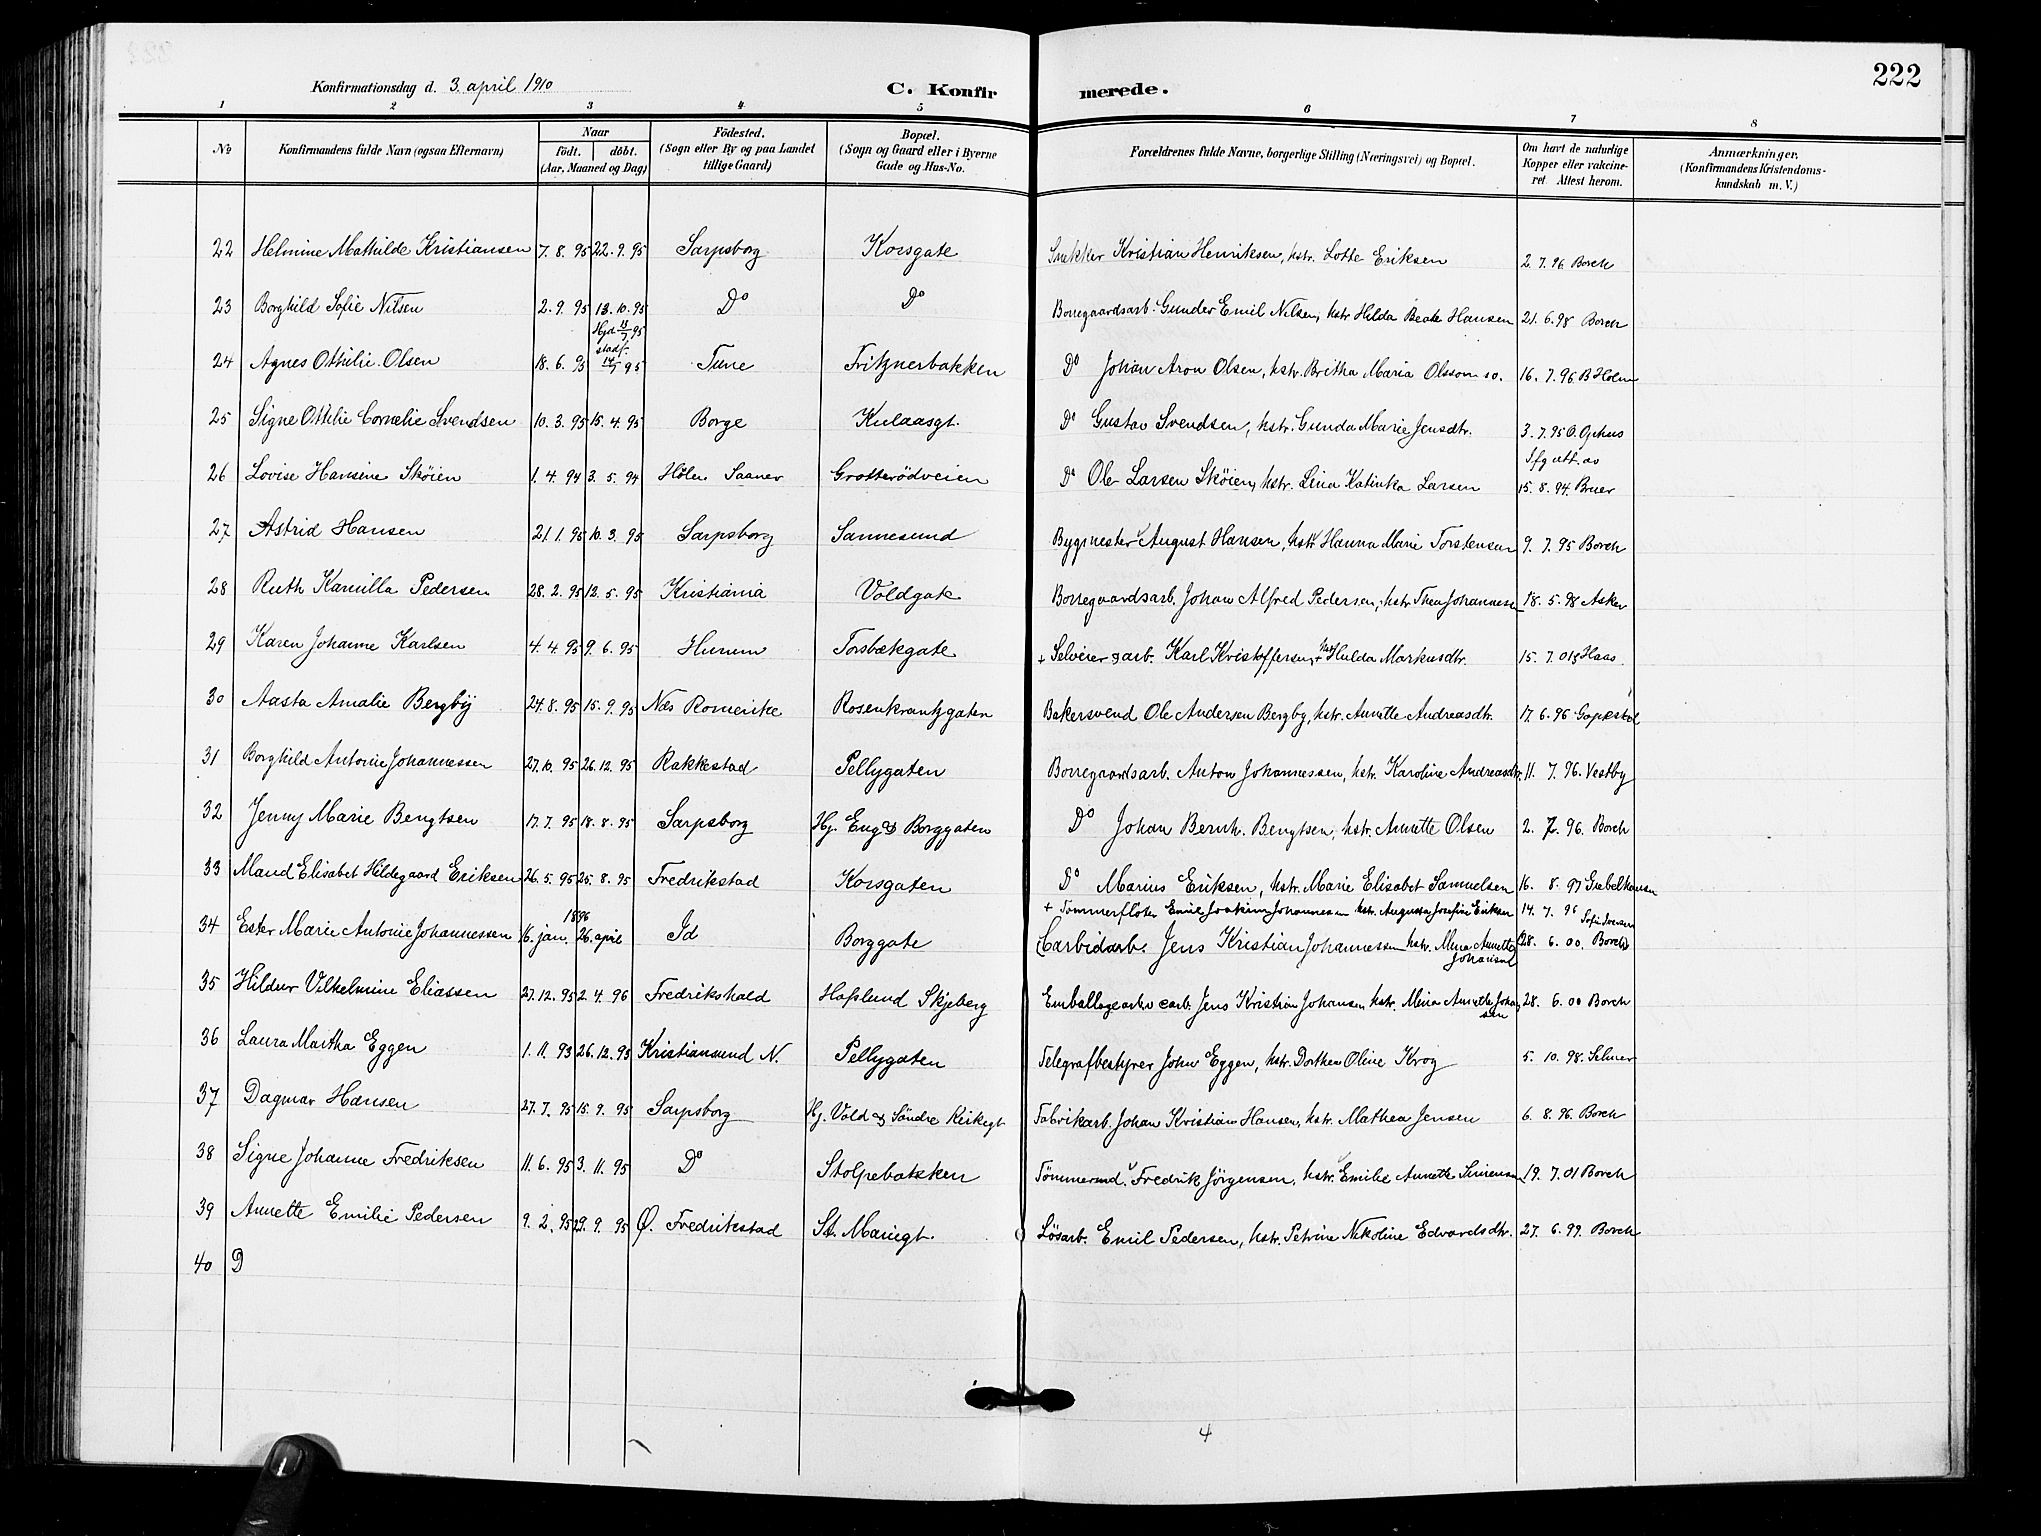 222
Konfirmationsdag d. 3. april 1910 C. Konfirmerede.
1 2 3 4 5 6 7 8
No Konfirmandens fulde Navn (ogsaa Efternavn) Naar födt. döbt. (Aar, Maaned og Dag) Födested. (Sogn eller By og paa Landet tillige Gaard) Bopæl. (Sogn og Gaard eller i Byerne Gade og Hus-No. Forældrenes fulde Navne, borgerlige Stilling (Næringsvei) og Bopæl. Om havt de naturlige Kopper eller vakcineret Attest herom. Anmærkninger. (Konfirmandens Kristendomskundskab m. V.)
22 Helmine Mathilde Kristiansen 7. 8. 95 22. 9. 95 Sarpsborg Korsgate Snekker Kristian Henriksen, hstr. Lotte Eriksen 2. 7. 96 Borch
23 Borghild Sofie Nilsen 2. 9. 95 13. 10. 95 Do Do Borregaardsarb. Gunder Emil Nilsen, hstr Hilda Beate Hansen 21. 6. 98 Borch
24 Agnes Othilie Olsen 18. 6. 93 Hjd. 95 stadf. 95 Tune Fritznerbakken Do Johan Aron Olsen, hstr. Britha Maria Olsson 16. 7. 96. B Holm
25 Signe Othilie Cornelie Svendsen 10. 3. 95 15. 4. 95 Borge Kulaasgt. Do Gustav Svendsen, hstr. Gunda Marie Jensdtr. 3. 7. 95 O. Ophus
26 Lovise Hansine Skøien 1. 4. 94 3. 5. 94 Hölen Saaner Grotterødveien Do Ole Larsen Skøien, hstr. Lina Katinka Larsen Ifg att. av 15. 8. 94. Bruer
27 Astrid Hansen 21. 1. 95 10. 3. 95 Sarpsborg Sannesund Bygmester August Hansen, hstr Hanna Marie Torstensen 9. 7. 95 Borch
28 Ruth Kamilla Pedersen 28. 2. 95 12. 5. 95 Kristiania Voldgate Borregaardsarb. Johan Alfred Pedersen, hstr Thea Johannesen 18. 5. 98 Asker
29 Karen Johanne Karlsen 4. 4. 95 9. 6. 95 Hurum Torsbækgate + Selveier & arb. Karl Kristoffersen, + Hulda Markusdtr. 15. 7. 01 Haas.
30 Aasta Amalie Bergby 24. 8. 95 15. 9. 95 Næs Romerike Rosenkrantzgaten Bakersvend Ole Andersen Bergby, hstr. Annette Andreasdtr. 17. 6. 96
31 Borghild Antonie Johannessen 27. 10. 95 26. 12. 95 Rakkestad Pellygaten Borregaardsarb. Anton Johannessen, hstr. Karoline Andreasdtr. 11. 7. 96. Vestby
32 Jenny Marie Bengtsen 17. 7. 95 18. 8. 95 Sarpsborg Hj. Eng & Borggaten Do Johan Bernh. Bengtsen, hstr. Annette Olsen 2. 7. 96. Borch
33 Maud Elisabet Hildegaard Eriksen 26. 5. 95 25. 8. 95 Fredrikstad Korsgaten Do Marius Eriksen, hstr. Marie Elisabet Samuelsen 16. 8. 97
34 Ester Marie Antonie Johannessen 1896 16. jan. 26. april Id Borggate + Tømmerfløter Emil Joakim Johannesen hstr. Augusta Josefine Eriksen 14. 7. 96 Sofie Iversen
(Carbidarb. Jens Kristian Johannessen hstr. Mina Annette Johansen 28. 6. 00. Borch)
35 Hildur Vilhelmine Eliassen 27. 12. 95 2. 4. 96 Fredrikshald Hafslund Skjeberg Emballagearb. Jens Kristian Johansen, hstr. Mina Annette Johansen 28. 6. 00 Borch
36 Laura Martha Eggen 1. 11. 93 26. 12. 93 Kristiansund N. Pellygaten Telegrafbestyrer John Eggen, hstr. Dorthea Oline Krog 5. 10. 98. Selmer
37 Dagmar Hansen 27. 7. 95 15. 9. 95 Sarpsborg Hj. Vold & Søndre Kirkegt Fabrikarb. Johan Kristian Hansen, hstr. Mathea Jensen 6. 8. 96. Borch
38 Signe Johanne Fredriksen 11. 6. 95 3. 11. 95 Do Stolpebakken Tømmermd. Fredrik Jörgensen, hstr. Emilie Annette Simensen 19. 7. 01 Borch
39 Annette Emilie Pedersen 9. 2. 95 29. 9. 95 Ø. Fredrikstad St. Mariegt. Løsarb. Emil Pedersen, hstr. Petrine Nikoline Edvardsdtr. 27. 6. 99. Borch
40 D
4